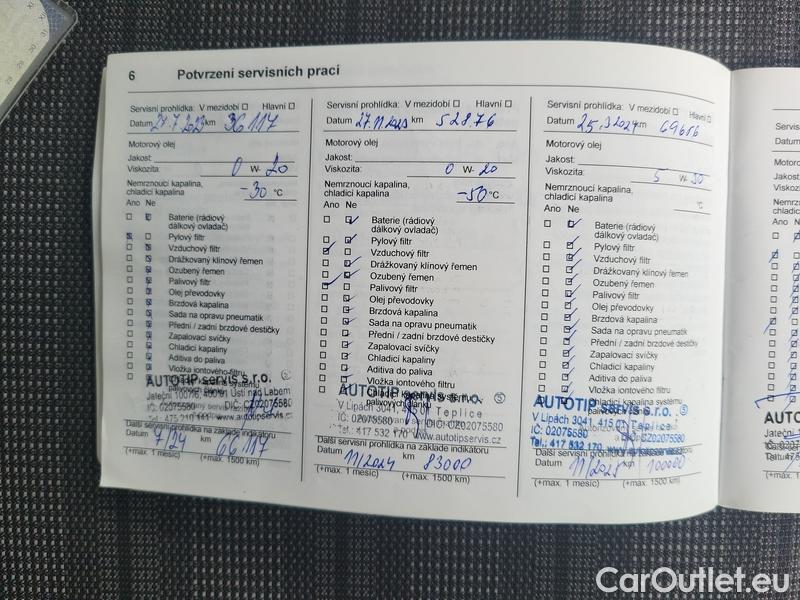 6 Potvrzení servisních prací
Servisní prohlídka: V mezidobí Hlavní
Datum 28.7.2023 km 36117
Motorový olej
Jakost:
Viskozita: 0 W- 20
Nemrznoucí kapalina,
chladicí kapalina -30 °C
Ano Ne
Baterie (rádiový
dálkový ovladač)
Pylový filtr
Vzduchový filtr
Drážkovaný klínový řemen
Ozubený řemen
Palivový filtr
Olej převodovky
Brzdová kapalina
Sada na opravu pneumatik
Přední / zadní brzdové destičky
Zapalovací svíčky
Chladicí kapaliny
Aditiva do paliva
Vložka iontového filtru
AUTOTIP servis s.r.o.
Jateční 100/76, 400 01 Ústí nad Labem
IČ: 02075580 DIČ: CZ02075580
www.autotipservis.cz
Další servisní prohlídka na základě indikátoru
Datum 7/24 km 66117
(+max. 1 měsíc) (+max. 1500 km)
Servisní prohlídka: V mezidobí Hlavní
Datum 27.11.2023 km 52876
Motorový olej
Jakost:
Viskozita: 0 W- 20
Nemrznoucí kapalina,
chladicí kapalina -50 °C
Ano Ne
Baterie (rádiový
dálkový ovladač)
Pylový filtr
Vzduchový filtr
Drážkovaný klínový řemen
Ozubený řemen
Palivový filtr
Olej převodovky
Brzdová kapalina
Sada na opravu pneumatik
Přední / zadní brzdové destičky
Zapalovací svíčky
Chladicí kapaliny
Aditiva do paliva
Vložka iontového filtru
AUTOTIP servis s.r.o.
V Lipách 3041, 415 01 Teplice
IČ: 02075580 DIČ: CZ02075580
Tel.: 417 532 170 www.autotipservis.cz
Další servisní prohlídka na základě indikátoru
Datum 11/2024 km 83000
(+max. 1 měsíc) (+max. 1500 km)
Servisní prohlídka: V mezidobí Hlavní
Datum 25.3.2024 km 69686
Motorový olej
Jakost:
Viskozita: 5 W- 30
Nemrznoucí kapalina,
chladicí kapalina °C
Ano Ne
Baterie (rádiový
dálkový ovladač)
Pylový filtr
Vzduchový filtr
Drážkovaný klínový řemen
Ozubený řemen
Palivový filtr
Olej převodovky
Brzdová kapalina
Sada na opravu pneumatik
Přední / zadní brzdové destičky
Zapalovací svíčky
Chladicí kapaliny
Aditiva do paliva
Vložka iontového filtru
AUTOTIP servis s.r.o.
V Lipách 3041, 415 01 Teplice
IČ: 02075580 DIČ: CZ02075580
Tel.: 417 532 170
Další servisní prohlídka na základě indikátoru
Datum 11/2025 km 100000
(+max. 1 měsíc) (+max. 1500 km)
CarOutlet.eu